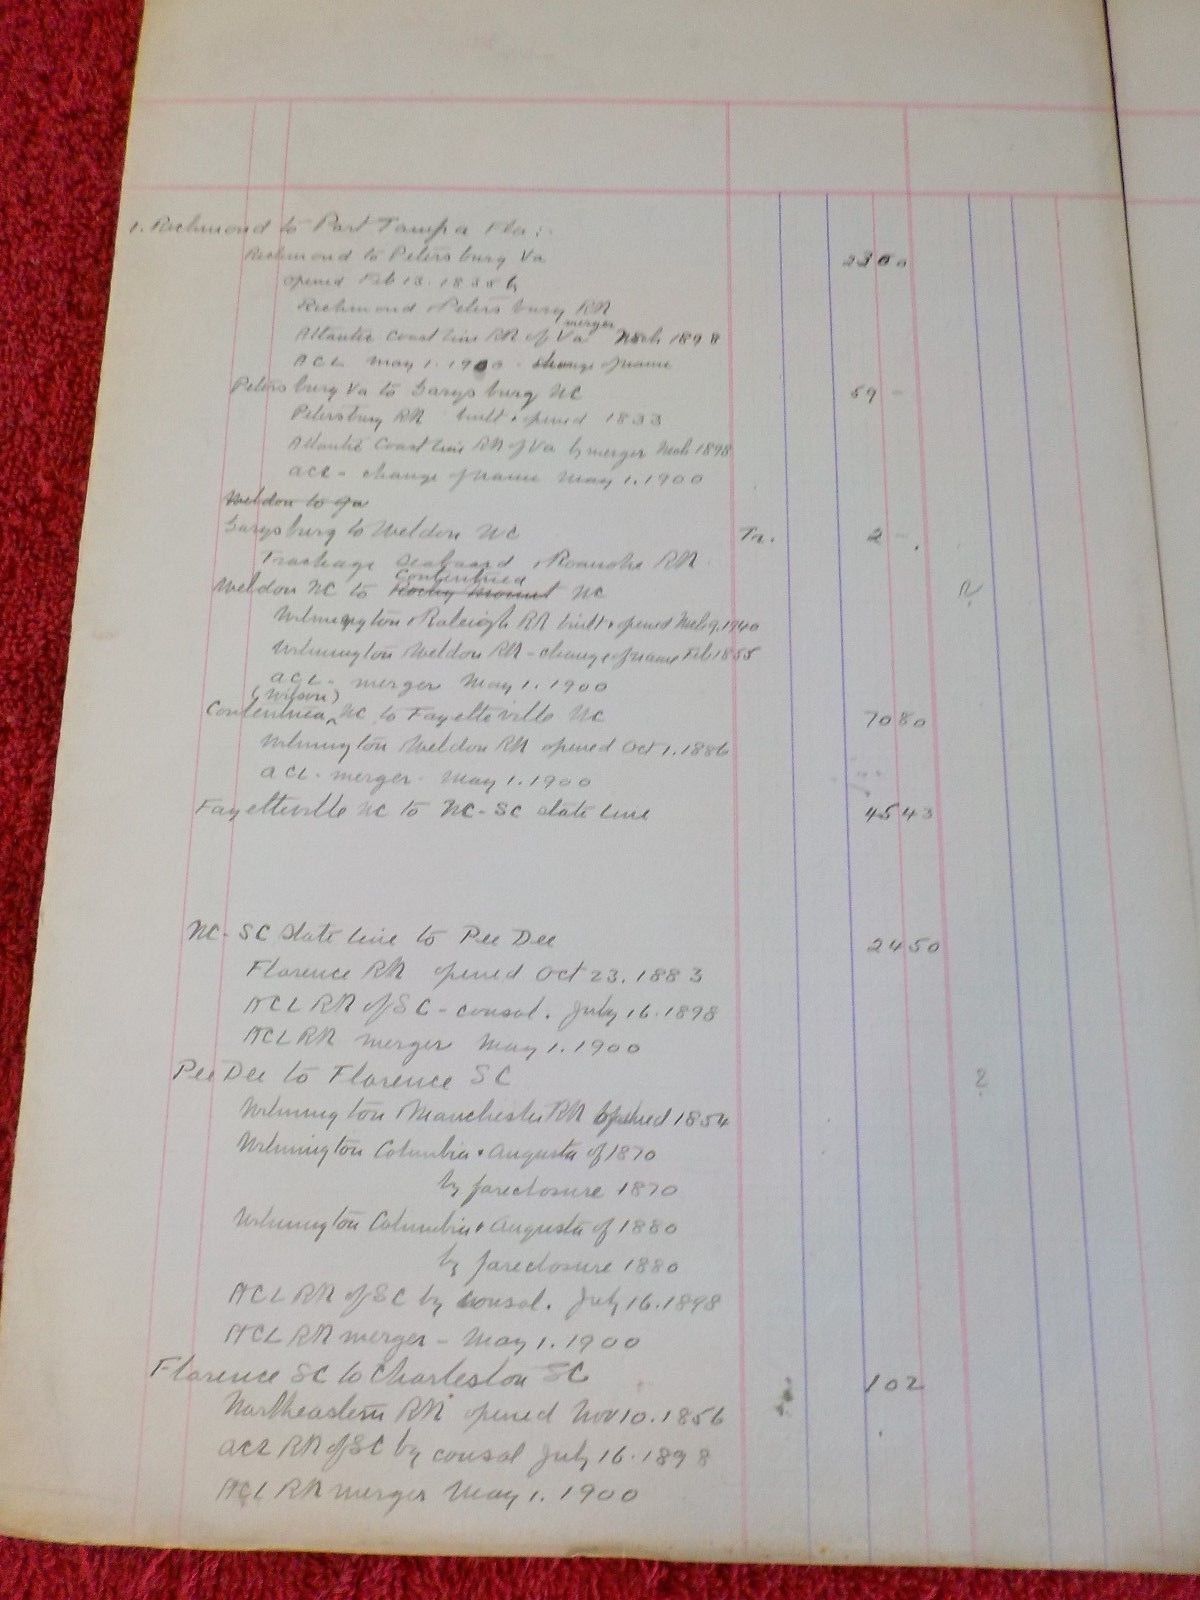 1. Richmond to Port Tampa Fla:-
Richmond to Petersburg Va 2300
opened Feb 13. 1838 by
Richmond & Petersburg RR
Atlantic Coast Line RR of Va merger Mch 1898
ACL May 1. 1900 - change of name
Petersburg Va to Garysburg NC 59 -
Petersburg RR built & opened 1833
Atlantic Coast Line RR of Va by merger Mch 1898
ACL - change of name May 1. 1900
Weldon to
Garysburg to Weldon NC Tr. 2 -
Trackage Seaboard & Roanoke RR
Weldon NC to Rocky Mount Contentnea NC ?
Wilmington & Raleigh RR built & opened Mch 9. 1940
Wilmington & Weldon RR - change of name Feb 1855
ACL - merger May 1. 1900
Contentnea (Wilson) NC to Fayetteville NC 7080
Wilmington & Weldon RR opened Oct 1. 1886
ACL - merger - May 1. 1900
Fayetteville NC to NC-SC state line 4543
NC-SC state line to Pee Dee 2450
Florence RR opened Oct 23. 1883
ACL RR of SC - consol. July 16. 1898
ACL RR merger May 1. 1900
Pee Dee to Florence SC ?
Wilmington & Manchester RR opened 1854
Wilmington Columbia & Augusta of 1870
by foreclosure 1870
Wilmington Columbia & Augusta of 1880
by foreclosure 1880
ACL RR of SC by consol. July 16. 1898
ACL RR merger - May 1. 1900
Florence SC to Charleston SC 102
Northeastern RR opened Nov 10. 1856
ACL RR of SC by consol July 16. 1898
ACL RR merger May 1. 1900